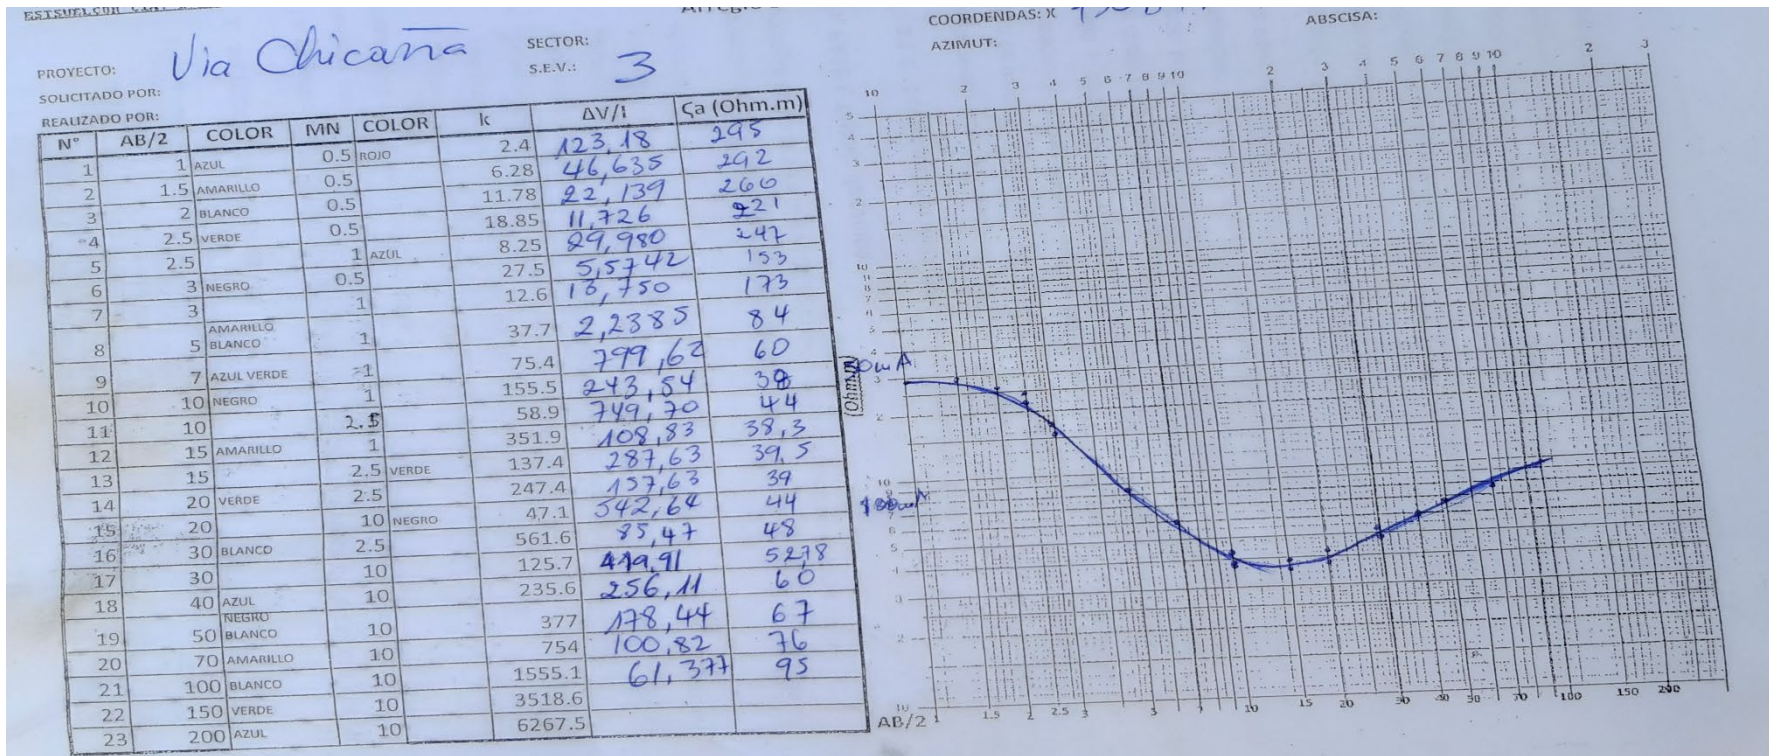 COORDENDAS: X
ABSCISA:
PROYECTO: Via Chicaña
SECTOR:
AZIMUT:
SOLICITADO POR:
S.E.V.: 3
REALIZADO POR:
N° AB/2 COLOR MN COLOR k ΔV/I ϛa (Ohm.m)
1 1 AZUL 0.5 ROJO 2.4 123,18 295
2 1.5 AMARILLO 0.5 6.28 46,635 292
3 2 BLANCO 0.5 11.78 22,139 260
4 2.5 VERDE 0.5 18.85 11,726 221
5 2.5 1 AZUL 8.25 29,980 247
6 3 NEGRO 0.5 27.5 5,5742 153
7 3 1 12.6 13,750 173
8 5 AMARILLO BLANCO 1 37.7 2,2385 84
9 7 AZUL VERDE 1 75.4 799,62 60
10 10 NEGRO 1 155.5 243,54 38
11 10 2.5 58.9 749,70 44
12 15 AMARILLO 1 351.9 108,83 38,3
13 15 2.5 VERDE 137.4 287,63 39,5
14 20 VERDE 2.5 247.4 157,63 39
15 20 10 NEGRO 47.1 542,64 44
16 30 BLANCO 2.5 561.6 85,47 48
17 30 10 125.7 419,91 52,78
18 40 AZUL 10 235.6 256,11 60
19 50 NEGRO BLANCO 10 377 178,44 67
20 70 AMARILLO 10 754 100,82 76
21 100 BLANCO 10 1555.1 61,377 95
22 150 VERDE 10 3518.6
23 200 AZUL 10 6267.5
10 2 3 4 5 6 7 8 9 10 2 3 4 5 6 7 8 9 10 2 3
5
3
2
10
4
3
2
10
5
4
3
2
10
(Ohm.m)
AB/2 1 1.5 2 2.5 3 5 7 10 15 20 30 40 50 70 100 150 200